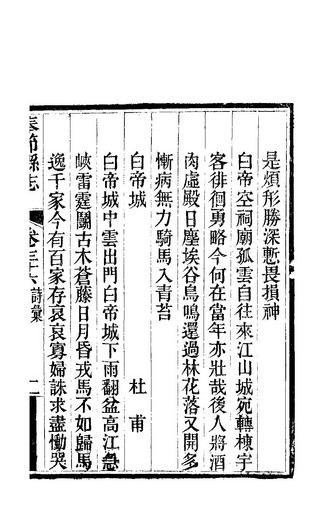 是煩形勝深慙畏損神
白帝空祠廟孤雲自往來江山城宛轉棟宇
客徘徊勇略今何在當年亦壯哉後人將酒
肉虛殿日塵埃谷鳥鳴還過林花落又開多
慚病無力騎馬入青苔
白帝城
杜甫
白帝城中雲出門白帝城下雨翻盆高江急
峽雷霆鬭古木蒼藤日月昏戎馬不如歸馬
逸千家今有百家存哀哀寡婦誅求盡慟哭
奉節縣志
卷三十六
詩彙
二